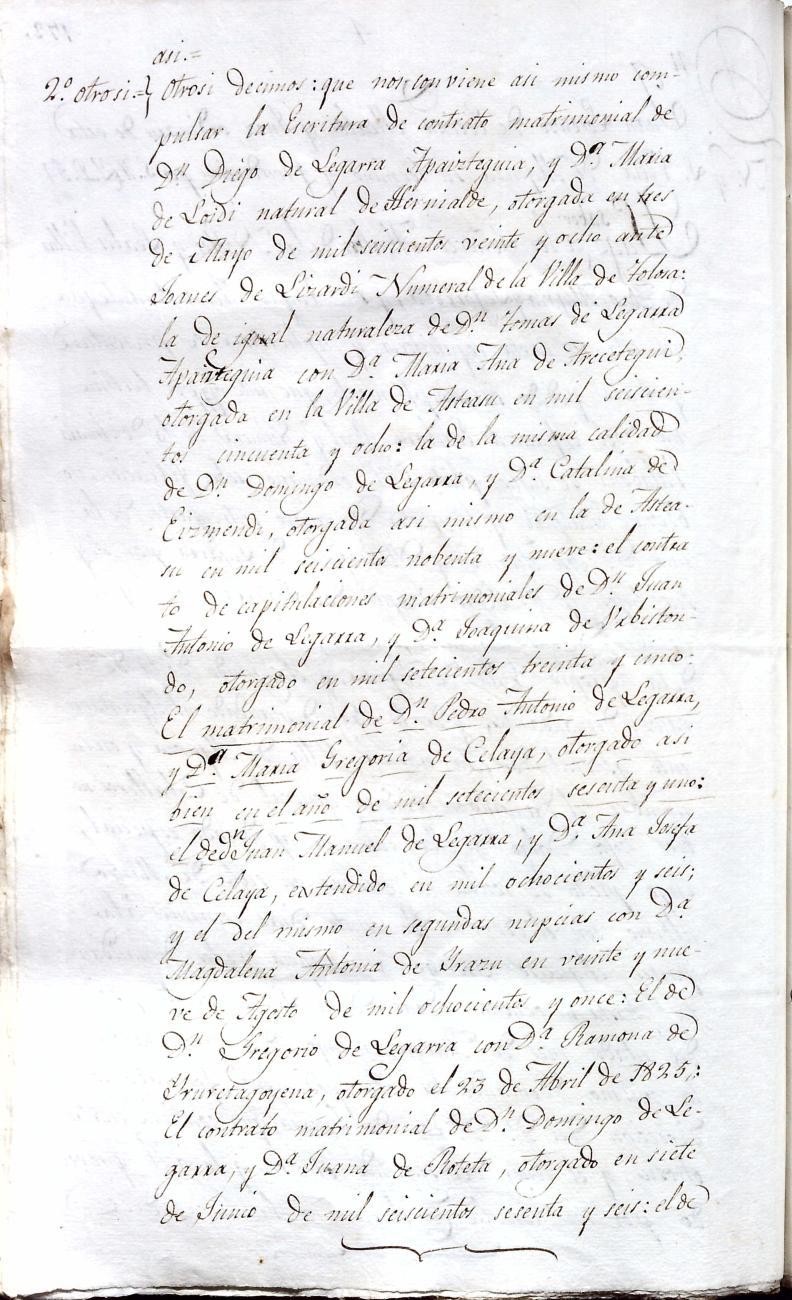 asi.=
2.º otrosi.=} Otrosi decimos: que nos conviene asi mismo com-
pulsar la Escritura de contrato matrimonial de
Dⁿ Diego de Legarra Apaizteguia, y D.ª Maria
de Loidi natural de Hernialde, otorgada en tres
de Mayo de mil seiscientos veinte y ocho ante
Joanes de Lizardi Numeral de la Villa de Tolosa:
la de igual naturaleza de Dⁿ Tomas de Legarra
Apaizteguia con D.ª Maria Ana de Arecetegui,
otorgada en la Villa de Asteasu en mil seiscien-
tos cincuenta y ocho: la de la misma calidad
de Dⁿ Domingo de Legarra, y D.ª Catalina de
Eizmendi, otorgada asi mismo en la de Astea-
su en mil seiscientos nobenta y nueve: el contra
to de capitulaciones matrimoniales de Dⁿ Juan
Antonio de Legarra, y D.ª Joaquina de Vrbiston-
do, otorgado en mil setecientos treinta y cinco:
El matrimonial de Dⁿ Pedro Antonio de Legarra,
y D.ª Maria Gregoria de Celaya, otorgado asi
bien en el año de mil setecientos sesenta y uno:
el de dⁿ Juan Manuel de Legarra, y D.ª Ana Josefa
de Celaya, extendido en mil ochocientos y seis;
y el del mismo en segundas nupcias con D.ª
Magdalena Antonia de Yrazu en veinte y nue-
ve de Agosto de mil ochocientos y once: El de
Dⁿ Gregorio de Legarra con D.ª Ramona de
Yruretagoyena, otorgado el 23 de Abril de 1825;:
El contrato matrimonial de Dⁿ Domingo de Le-
garra, y D.ª Juana de Roteta, otorgado en siete
de Junio de mil seiscientos sesenta y seis: el de